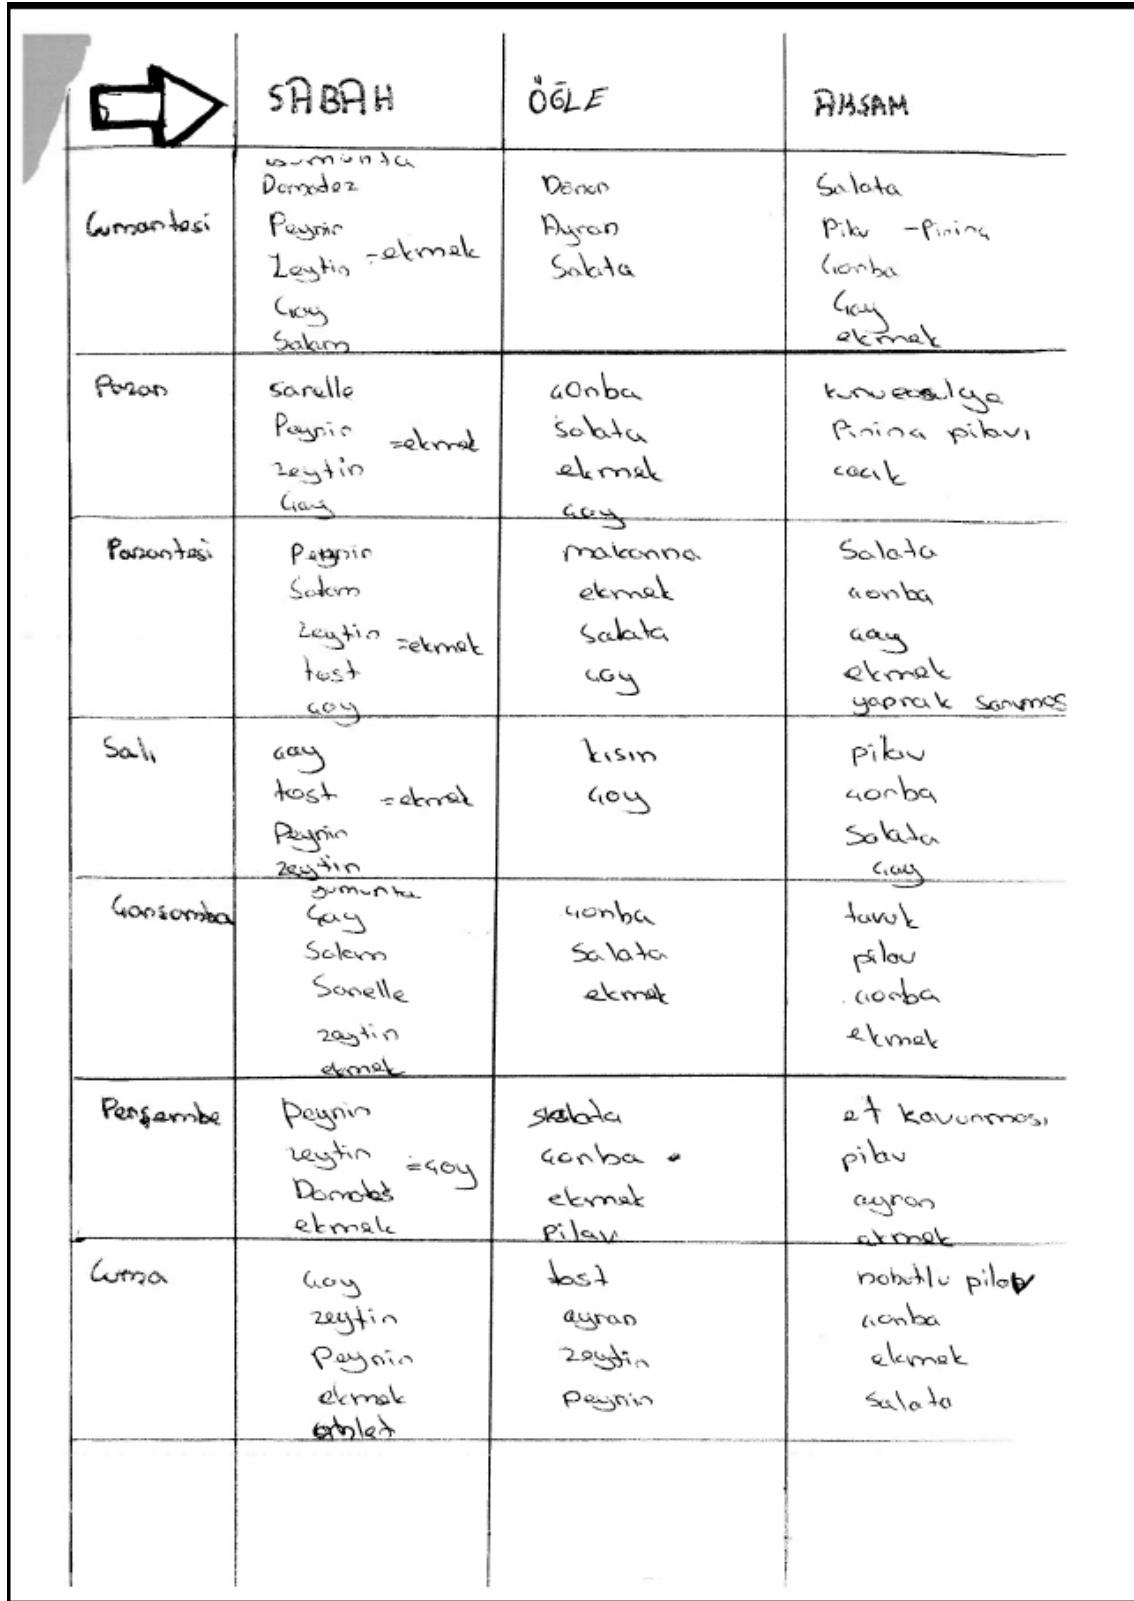 SABAH ÖĞLE AKŞAM
Cumartesi
yumurta
Domates
Peynir
Zeytin =ekmek
Çay
Salam
Döner
Ayran
Salata
Salata
Pilav -Pirinç
Çorba
Çay
ekmek
Pazar
sarelle
Peynir =ekmek
zeytin
Çay
çorba
Salata
ekmek
çay
Pirinç pilavı
cacık
Pazartesi
Peynir
Salam
Zeytin =ekmek
tost
çay
makarna
ekmek
Salata
çay
Salata
çorba
çay
ekmek
yaprak sarması
Salı
çay
tost =ekmek
Peynir
zeytin
kısır
çay
pilav
çorba
Salata
çay
Çarşamba
yumurta
Çay
Salam
Sarelle
zeytin
ekmek
çorba
Salata
ekmek
tavuk
pilav
çorba
ekmek
Perşembe
Peynir
zeytin =çay
Domates
ekmek
salata
çorba
ekmek
Pilav
et kavurması
pilav
ayran
ekmek
Cuma
çay
zeytin
Peynir
ekmek
omlet
tost
ayran
zeytin
peynir
nohutlu pilav
çorba
ekmek
Salata